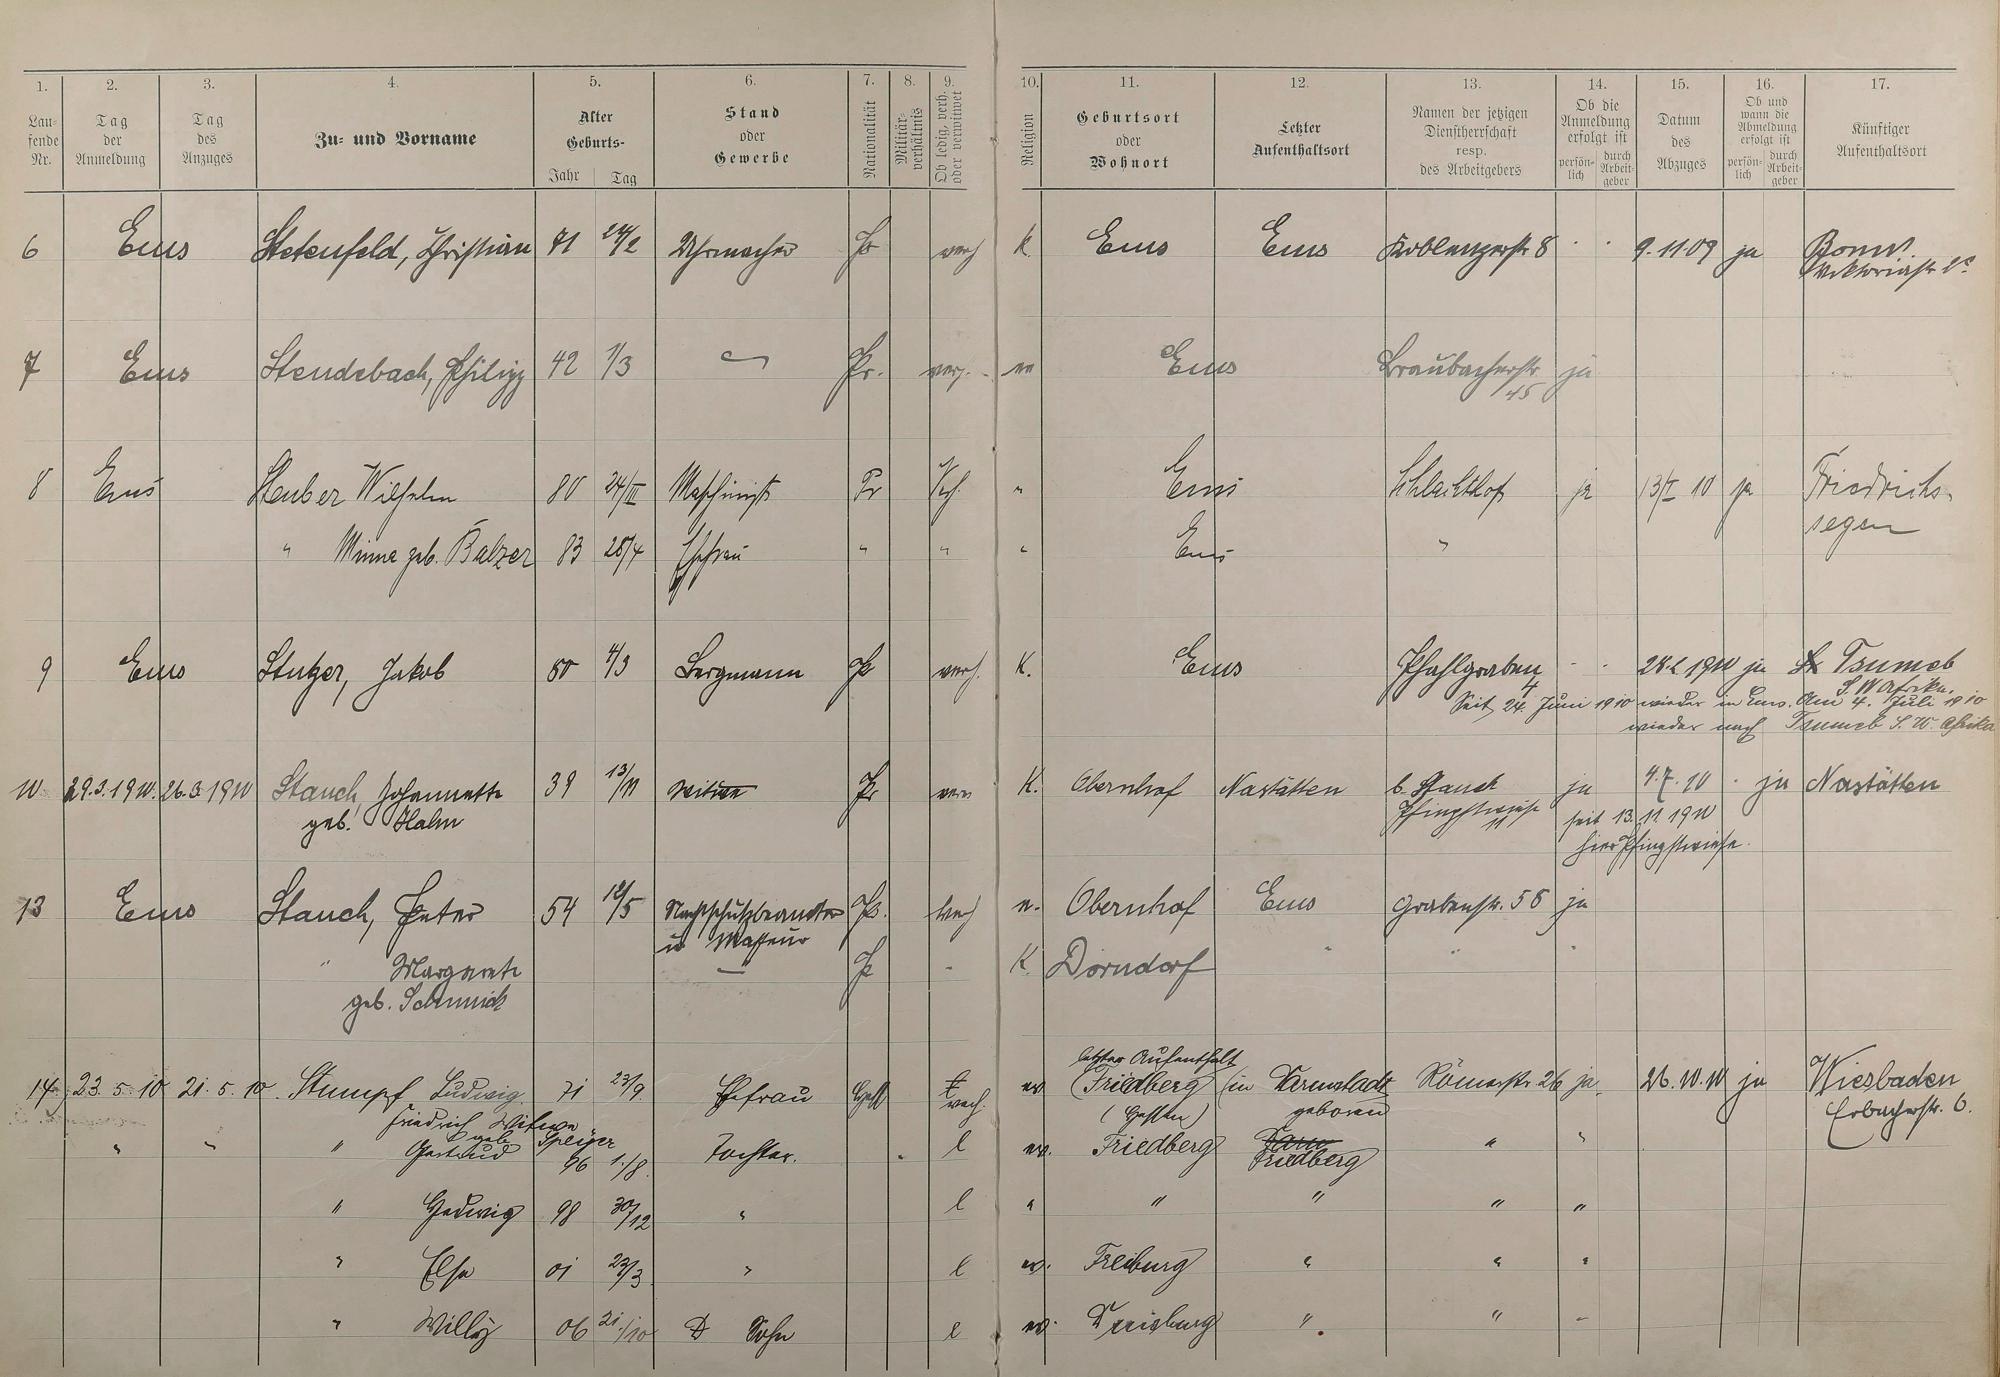 1. 2. 3. 4. 5. 6. 7. 8. 9. 10. 11. 12. 13. 14. 15. 16. 17.
Lau-
fende
Nr.
Tag
der
Anmeldung
Tag
des
Anzuges
Zu- und Vorname
Alter
Geburts-
Jahr Tag
Stand
oder
Gewerbe
Nationalität
Militär-
verhältnis
Ob ledig, verh.
oder verwitwet
Religion
Geburtsort
oder
Wohnort
Letzter
Aufenthaltsort
Namen der jetzigen
Dienstherrschaft
resp.
des Arbeitgebers
Ob die
Anmeldung
erfolgt ist
persön-
lich
durch
Arbeit-
geber
Datum
des
Abzuges
Ob und
wann die
Abmeldung
erfolgt ist
persön-
lich
durch
Arbeit-
geber
Künftiger
Aufenthaltsort
6 Ems Stetenfeld, Christian 71 24/2 Uhrmacher Pr verh K. Ems Ems Koblenzerstr 8 9.11.09 ja Bonn
Viktoriastr
7 Ems Stendebach, Philipp 42 1/3 Pr. verh. ev Ems Braubacherstr. ja
45
8 Ems Steuber Wilhelm 80 24/III Maschinist Pr Vrh. " Ems Schlachthof ja 13/I 10 ja Friedrichs-
segen
" Minna geb. Balzer 83 28/4 Ehefrau " " " Ems "
9 Ems Stutzer, Jakob 80 4/3 Bergmann Pr verh. K. Ems Pfahlgraben 1910 ja Tsumeb
4 S. W Afrika.
Seit 24. Juni 1910 wieder in Ems. Am 4. Juli 1910
wieder nach Tsumeb S. W. Afrika
10 29.3.1910. 26.3.1910 Stauch, Johannette 39 13/11 Witwe Pr K. Obernhof Nastätten b. Stauch ja 4.7.10 ja Nastätten
geb. Halm Pfingstwiese 11 seit 13.11 1910
hier Pfingstwiese.
13 Ems Stauch, Peter 54 12/5 Pr. verh e. Obernhof Ems Grabenstr. 56 ja
u Masseur
" Margarete Pr K. Dorndorf " " "
geb. Schmidt
letzter Aufenthalt
14 23.5.10 21.5.10. Stumpf Ludwig 71 23/9 Ehefrau Hess verh. ev (Friedberg (in Darmstadt Römerstr. 26 ja. 26.10.10 ja Wiesbaden
Friedrich Witwe (Hessen) geboren Erbacherstr. 6.
geb. Speyer
" " " Gertrud 96 1./8. Tochter. l ev. Friedberg Friedberg " "
" Hedwig 98 30/12 " l " " " " "
" Else 01 23/3 " l ev. Freiburg " " "
" Willy 06 21./10 Sohn l ev. Duisburg " " "